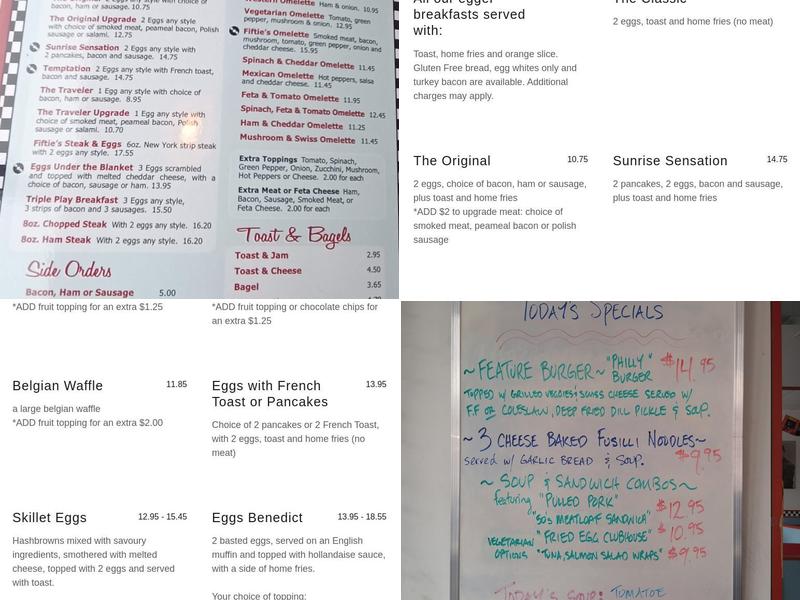 bacon, ham or sausage. 10.75
The Original Upgrade 2 Eggs any style
with choice of smoked meat, peameal bacon, Polish
sausage or salami. 12.75
Sunrise Sensation 2 Eggs any style with
2 pancakes, bacon and sausage. 14.75
Temptation 2 Eggs any style with French toast,
bacon and sausage. 14.75
The Traveler 1 Egg any style with choice of
bacon, ham or sausage. 8.95
The Traveler Upgrade 1 Egg any style with
choice of smoked meat, peameal bacon, Polish
sausage or salami. 10.70
Fiftie's Steak & Eggs 6oz. New York strip steak
with 2 eggs any style. 17.55
Eggs Under the Blanket 3 Eggs scrambled
and topped with melted cheddar cheese, with a
choice of bacon, sausage or ham. 13.95
Triple Play Breakfast 3 Eggs any style,
3 strips of bacon and 3 sausages. 15.50
8oz. Chopped Steak With 2 eggs any style. 16.20
8oz. Ham Steak With 2 eggs any style. 16.20
Side Orders
Bacon, Ham or Sausage 5.00
Western Omelette Ham & onion. 10.95
Vegetarian Omelette Tomato, green
pepper, mushroom & onion. 12.95
Fiftie's Omelette Smoked meat, bacon,
mushroom, tomato, green pepper, onion and
cheddar cheese. 15.95
Spinach & Cheddar Omelette 11.45
Mexican Omelette Hot peppers, salsa
and cheddar cheese. 11.45
Feta & Tomato Omelette 11.95
Spinach, Feta & Tomato Omelette 12.45
Ham & Cheddar Omelette 11.25
Mushroom & Swiss Omelette 11.45
Extra Toppings Tomato, Spinach,
Green Pepper, Onion, Zucchini, Mushroom,
Hot Peppers or Cheese. 2.00 for each
Extra Meat or Feta Cheese Ham,
Bacon, Sausage, Smoked Meat, or
Feta Cheese. 2.00 for each
Toast & Bagels
Toast & Jam 2.95
Toast & Cheese 4.50
Bagel 3.65
All our egger
breakfasts served
with:
Toast, home fries and orange slice.
Gluten Free bread, egg whites only and
turkey bacon are available. Additional
charges may apply.
The Classic
2 eggs, toast and home fries (no meat)
The Original 10.75
2 eggs, choice of bacon, ham or sausage,
plus toast and home fries
*ADD $2 to upgrade meat: choice of
smoked meat, peameal bacon or polish
sausage
Sunrise Sensation 14.75
2 pancakes, 2 eggs, bacon and sausage,
plus toast and home fries
*ADD fruit topping for an extra $1.25
*ADD fruit topping or chocolate chips for
an extra $1.25
Belgian Waffle 11.85
a large belgian waffle
*ADD fruit topping for an extra $2.00
Eggs with French
Toast or Pancakes 13.95
Choice of 2 pancakes or 2 French Toast,
with 2 eggs, toast and home fries (no
meat)
Skillet Eggs 12.95 - 15.45
Hashbrowns mixed with savoury
ingredients, smothered with melted
cheese, topped with 2 eggs and served
with toast.
Eggs Benedict 13.95 - 18.55
2 basted eggs, served on an English
muffin and topped with hollandaise sauce,
with a side of home fries.
Your choice of topping:
TODAY'S SPECIALS
~ FEATURE BURGER ~ "PHILLY" BURGER $14.95
TOPPED W/ GRILLED VEGGIES & SWISS CHEESE SERVED W/
F.F OR COLESLAW, DEEP FRIED DILL PICKLE & SOUP.
~ 3 CHEESE BAKED FUSILLI NOODLES ~
served w/ GARLIC BREAD & SOUP. $9.95
~ SOUP & SANDWICH COMBOS ~
featuring "PULLED PORK" $12.95
"50's MEATLOAF SANDWICH"
"FRIED EGG CLUBHOUSE" $10.95
VEGETARIAN OPTIONS "TUNA, SALMON SALAD WRAPS" $9.95
TODAY'S SOUP: TOMATOE